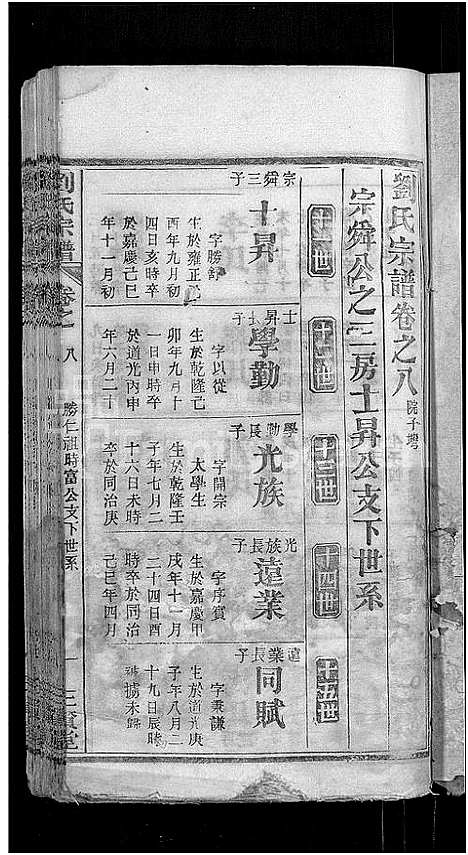 劉氏宗譜卷之八
院子塆
宗舜公之三房士昇公支下世系
十一世
十二世
十三世
十四世
十五世
宗舜三子
士昇
字勝舒
生於雍正
酉年九月初
四日亥時卒
於嘉慶己巳
年十一月初
士昇長子
學勤
字以從
生於乾隆己
卯年九月十
一日申時卒
於道光丙申
年六月二十
學勤長子
光族
字開宗
太學生
生於乾隆壬
子年七月二
十六日未時
卒於同治庚
光族長子
遠業
字序賓
生於嘉慶甲
戌年十一月
二十四日酉
時卒於同治
己巳年四月
遠業長子
同賦
字秉謙
生於道光庚
子年八月二
十九日辰時
被擄未歸
劉氏宗譜
卷之八
勝仁祖時富公支下世系
一
堂